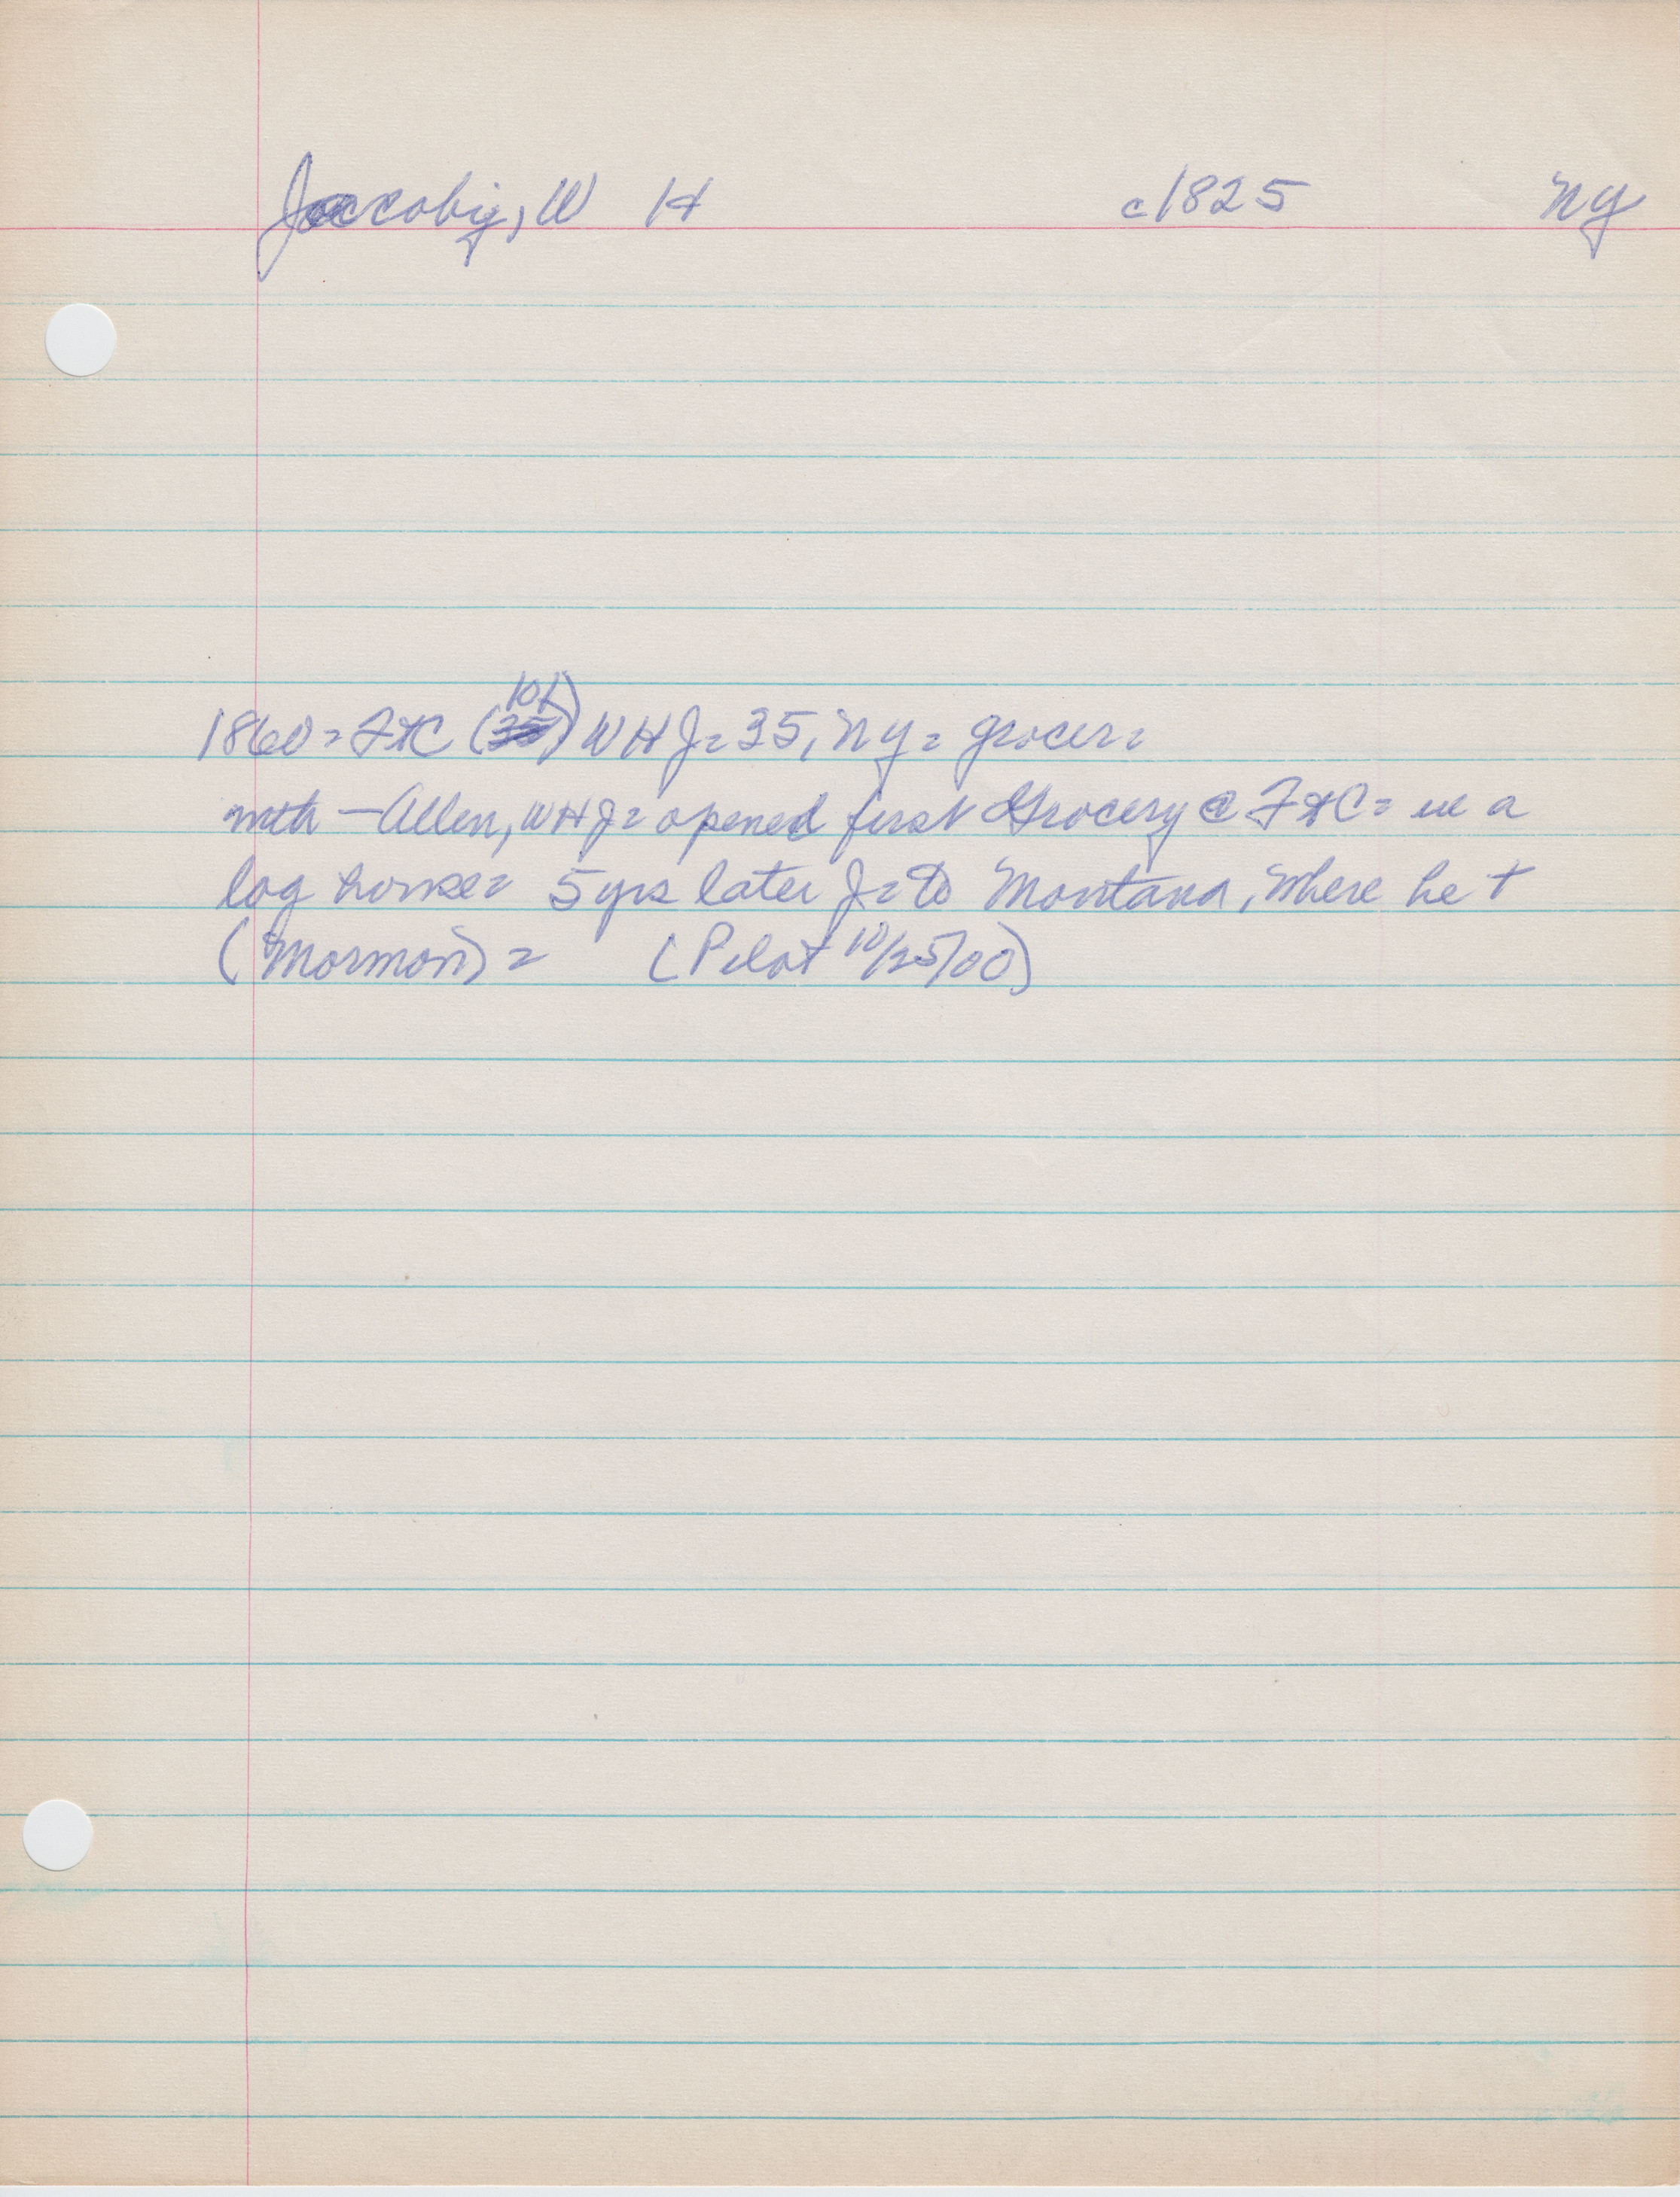 Jaccobiy, W H c1825 NY
1860 = FtC (101) WHJ = 35, NY = grocer =
with — Allen, WHJ = opened first Grocery @ FtC = in a
log house = 5 yrs later J = to Montana, where he +
(Mormon) = (Pilot 10/25/00)